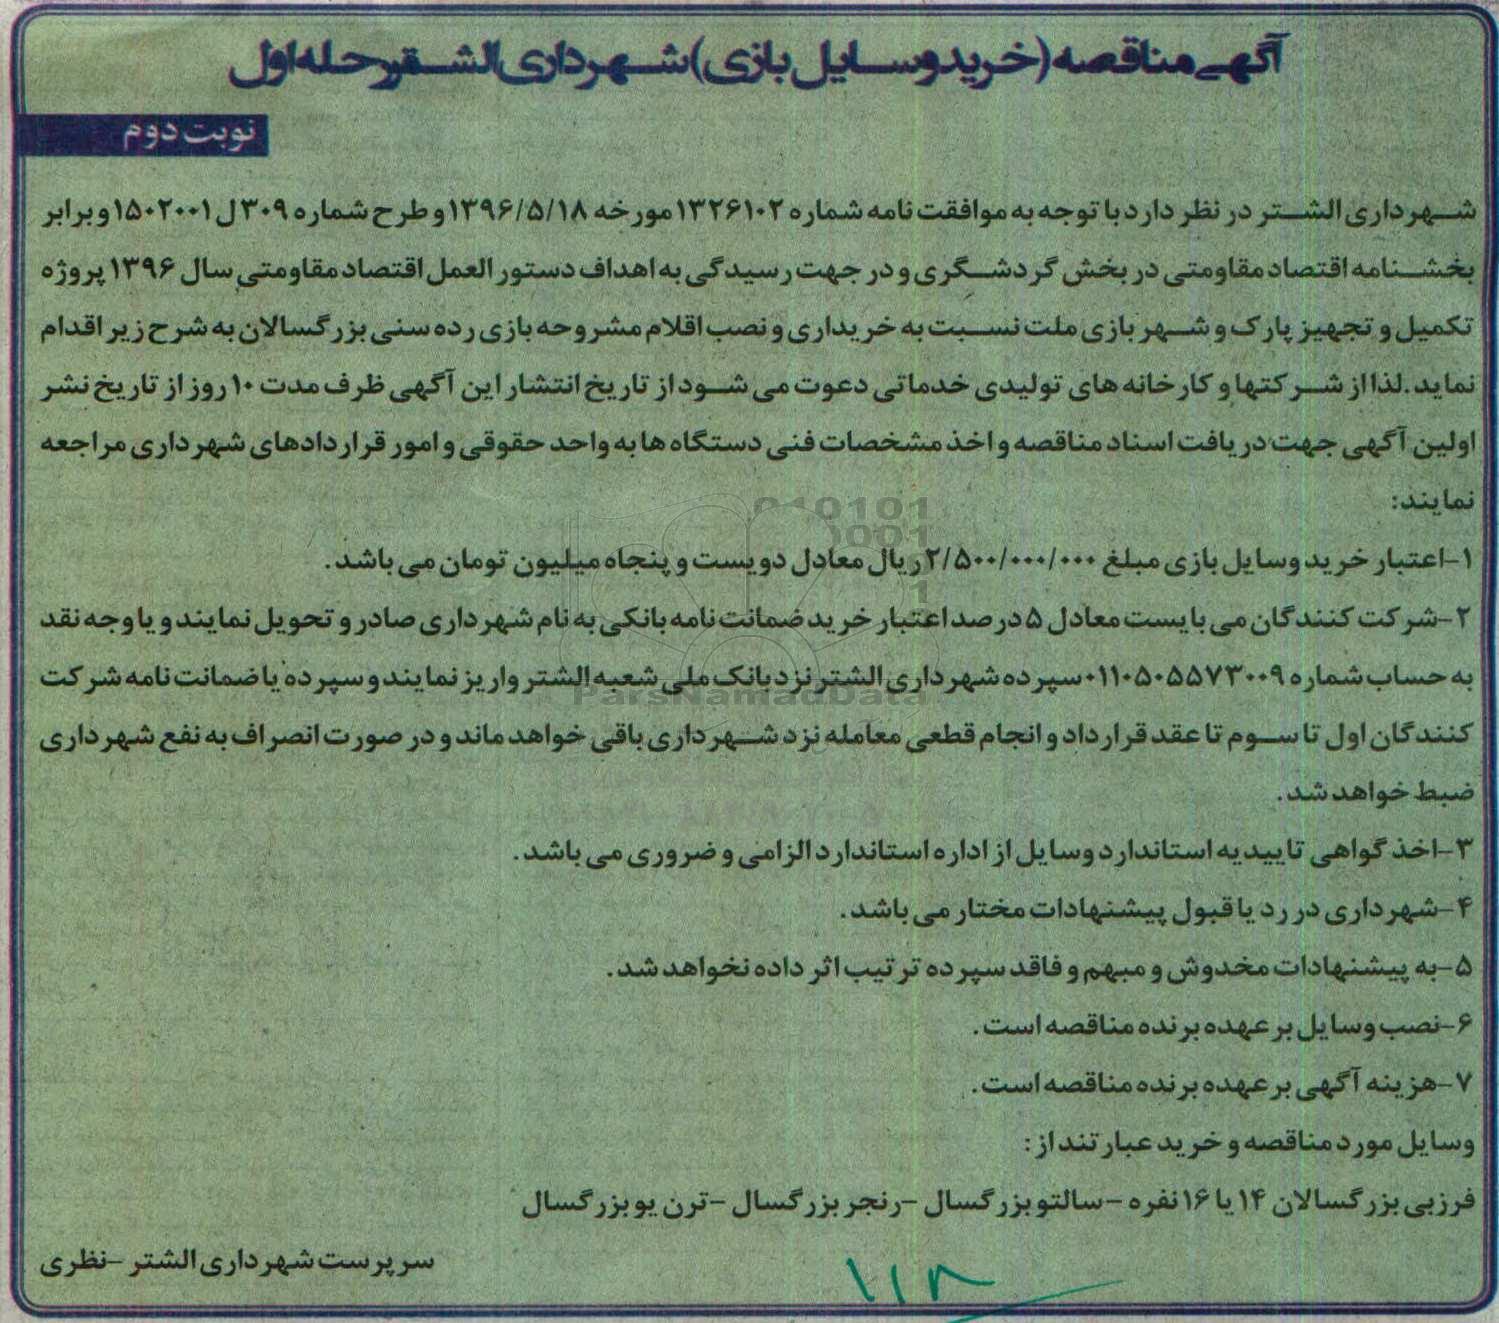 آگهی مناقصه (خرید وسایل بازی) شهرداری الشتر مرحله اول
نوبت دوم
شهرداری الشتر در نظر دارد با توجه به موافقت نامه شماره ۱۳۲۶۱۰۲ مورخه ۱۳۹۶/۵/۱۸ و طرح شماره ۳۰۹ ل ۱۵۰۲۰۰۱ و برابر
بخشنامه اقتصاد مقاومتی در بخش گردشگری و در جهت رسیدگی به اهداف دستور العمل اقتصاد مقاومتی سال ۱۳۹۶ پروژه
تکمیل و تجهیز پارک و شهر بازی ملت نسبت به خریداری و نصب اقلام مشروحه بازی رده سنی بزرگسالان به شرح زیر اقدام
نماید. لذا از شرکتها و کارخانه های تولیدی خدماتی دعوت می شود از تاریخ انتشار این آگهی ظرف مدت ۱۰ روز از تاریخ نشر
اولین آگهی جهت دریافت اسناد مناقصه و اخذ مشخصات فنی دستگاه ها به واحد حقوقی و امور قراردادهای شهرداری مراجعه
نمایند:
۱-اعتبار خرید وسایل بازی مبلغ ۲/۵۰۰/۰۰۰/۰۰۰ ریال معادل دویست و پنجاه میلیون تومان می باشد.
۲-شرکت کنندگان می بایست معادل ۵ درصد اعتبار خرید ضمانت نامه بانکی به نام شهرداری صادر و تحویل نمایند و یا وجه نقد
به حساب شماره ۰۱۱۰۵۰۵۵۷۳۰۰۹ سپرده شهرداری الشتر نزد بانک ملی شعبه الشتر واریز نمایند و سپرده یا ضمانت نامه شرکت
کنندگان اول تا سوم تا عقد قرارداد و انجام قطعی معامله نزد شهرداری باقی خواهد ماند و در صورت انصراف به نفع شهرداری
ضبط خواهد شد.
۳-اخذ گواهی تاییدیه استاندارد وسایل از اداره استاندارد الزامی و ضروری می باشد.
۴-شهرداری در رد یا قبول پیشنهادات مختار می باشد.
۵-به پیشنهادات مخدوش و مبهم و فاقد سپرده ترتیب اثر داده نخواهد شد.
۶-نصب وسایل بر عهده برنده مناقصه است.
۷-هزینه آگهی بر عهده برنده مناقصه است.
وسایل مورد مناقصه و خرید عبارتند از:
فرزبی بزرگسالان ۱۴ یا ۱۶ نفره -سالتو بزرگسال -رنجر بزرگسال -ترن یو بزرگسال
سرپرست شهرداری الشتر -نظری
ParsNamadData